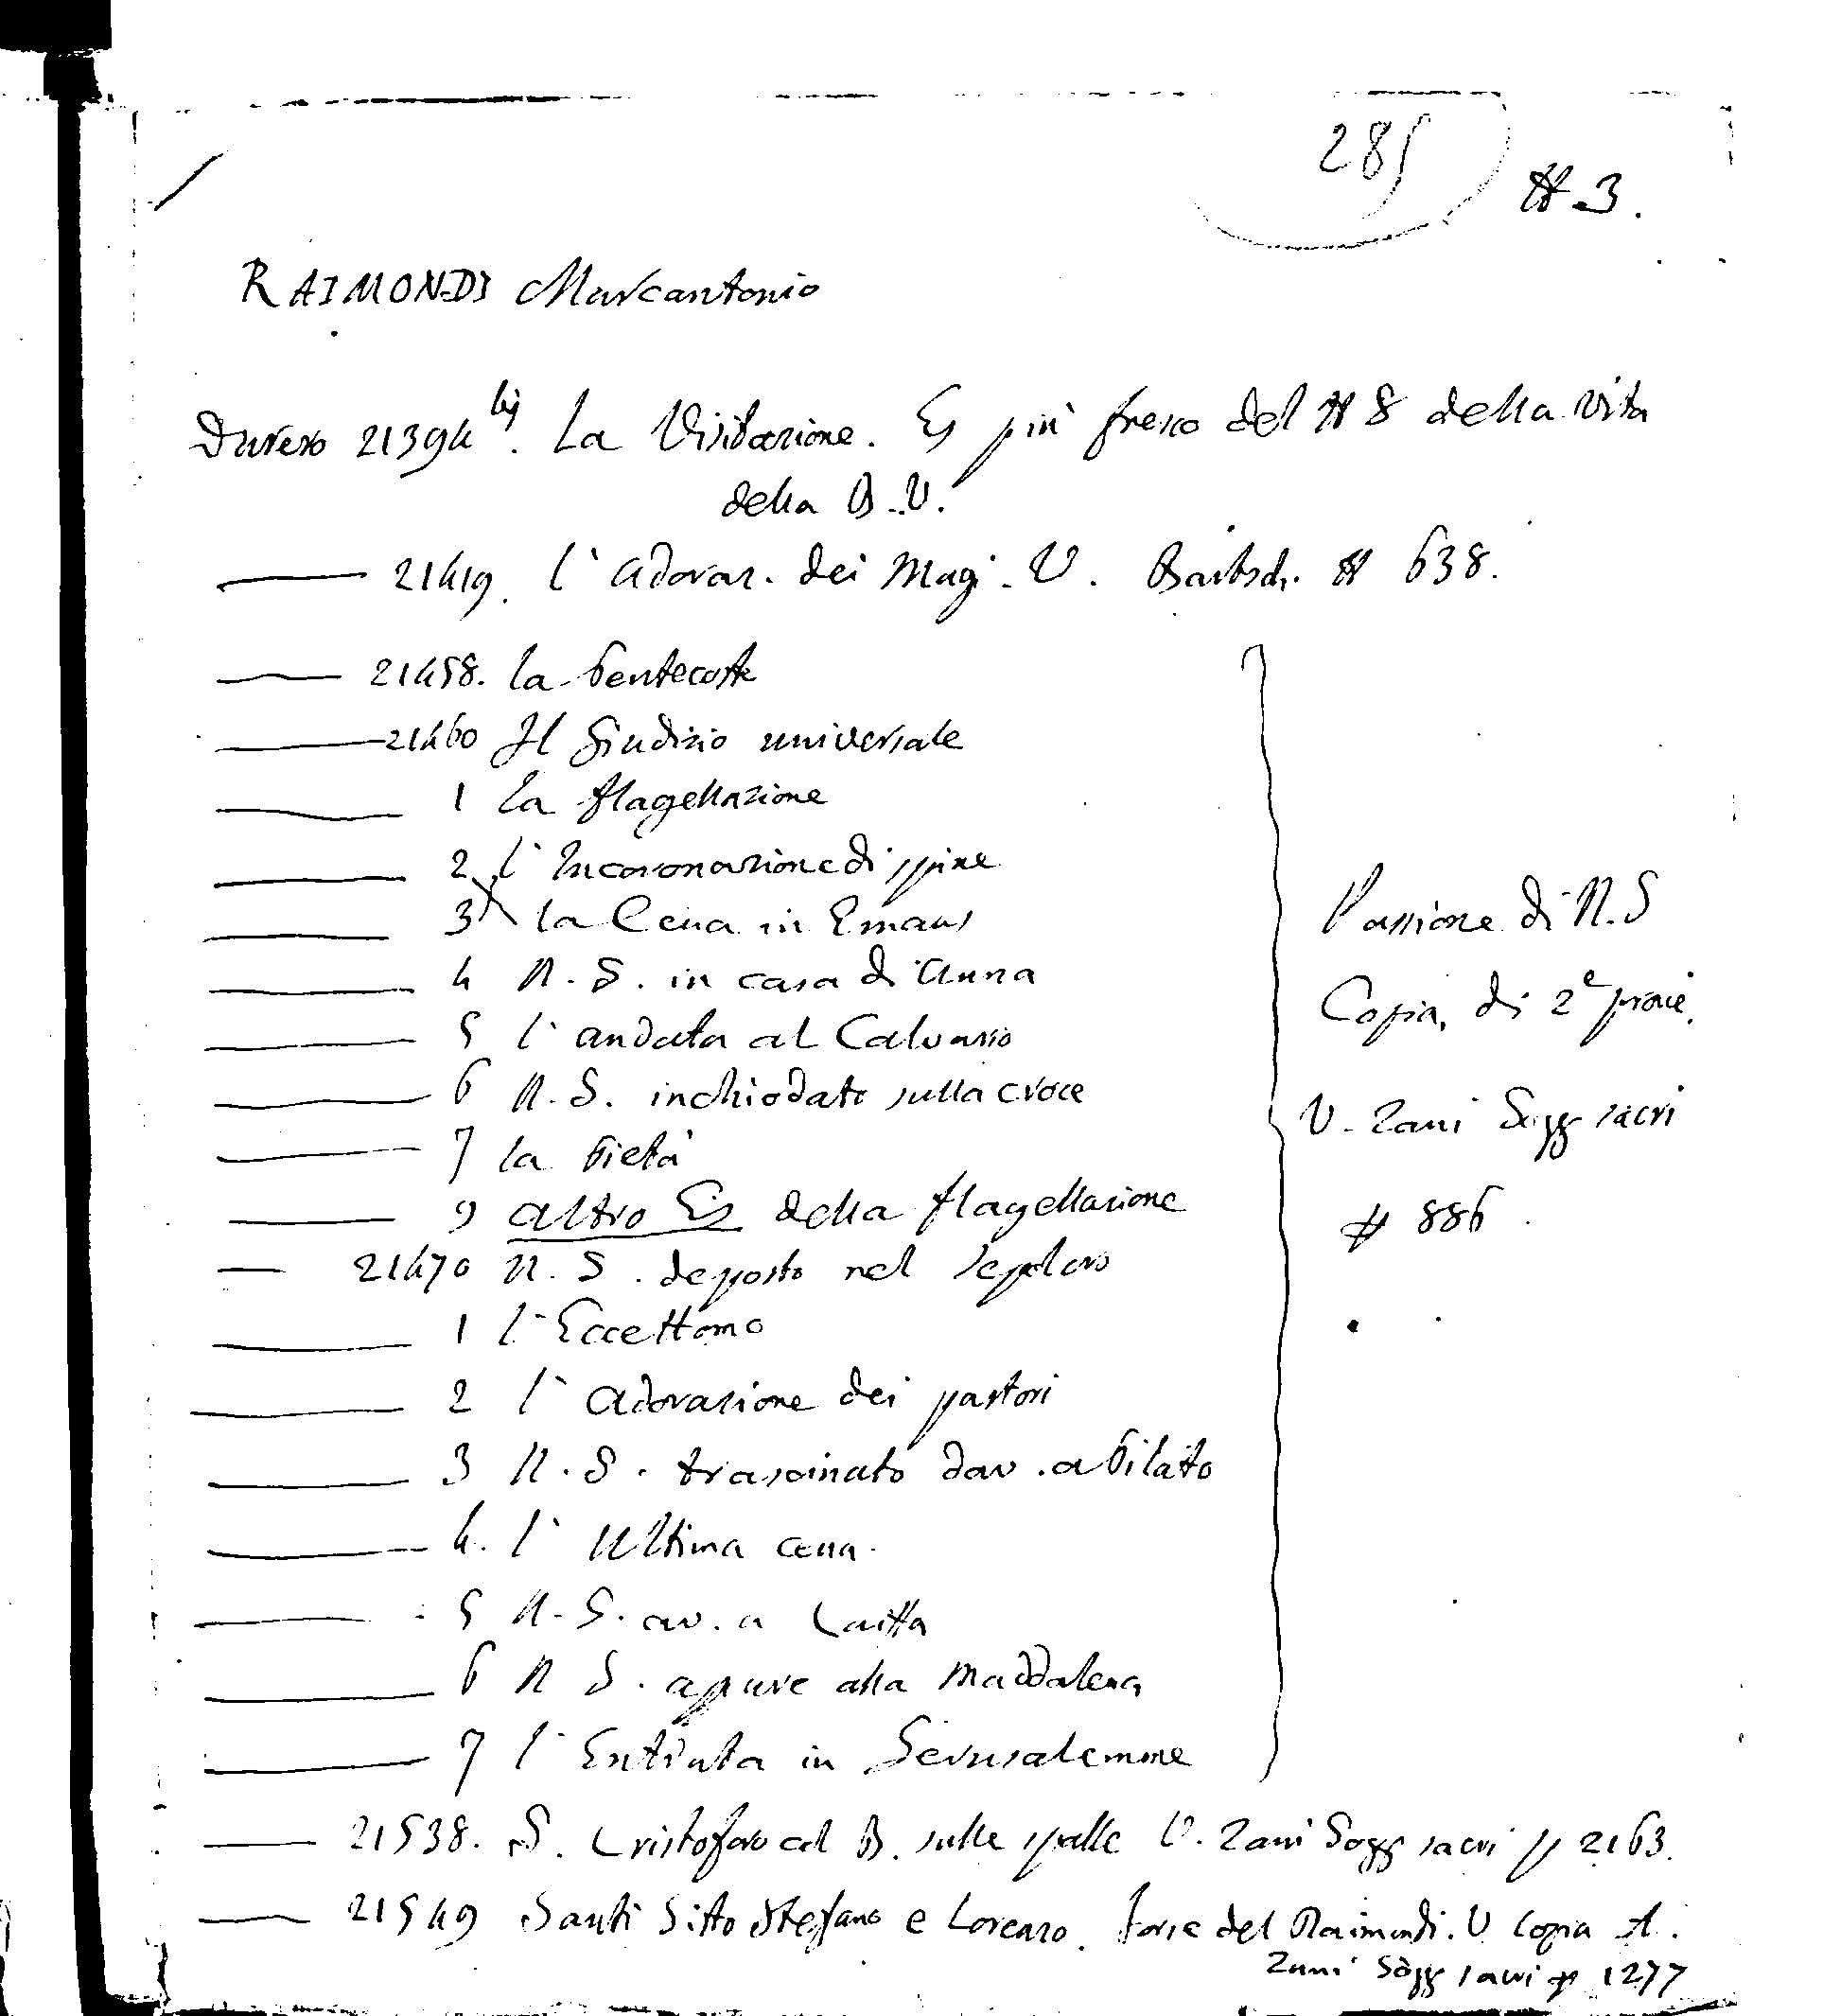 285
# 3.
RAIMONDI Marcantonio
Durero 21394 bis. La Visitazione. Es più fresco del # 8 della vita
della B. V.
21419. l'Adoraz. dei Magi. V. Bartsch. # 638.
21458. la Pentecoste
21460 Il Giudizio universale
1 La flagellazione
2 l'Incoronazione di spine
3 la Cena in Emaus
4 N. S. in casa di Anna
5 l'andata al Calvario
6 N. S. inchiodato sulla croce
7 la Pietà
9 altro Es della flagellazione
21470 N. S. deposto nel sepolcro
1 l'Eccettomo
2 l'adorazione dei pastori
3 N. S. trascinato dav. a Pilato
4. l'Ultima cena.
5 N. S. av. a Caiffa
6 N S. appare alla Maddalena
7 l'Entrata in Gerusalemme
Passione di N. S
Copia, di 2e prove.
V. Zani Sogg sacri
# 886.
21538. S. Cristoforo col B. sulle spalle V. Zani Sogg sacri p 2163.
21549 Santi Sisto Stefano e Lorenzo. Forse del Raimondi. V Copia A.
Zani Sogg sacri # 1277